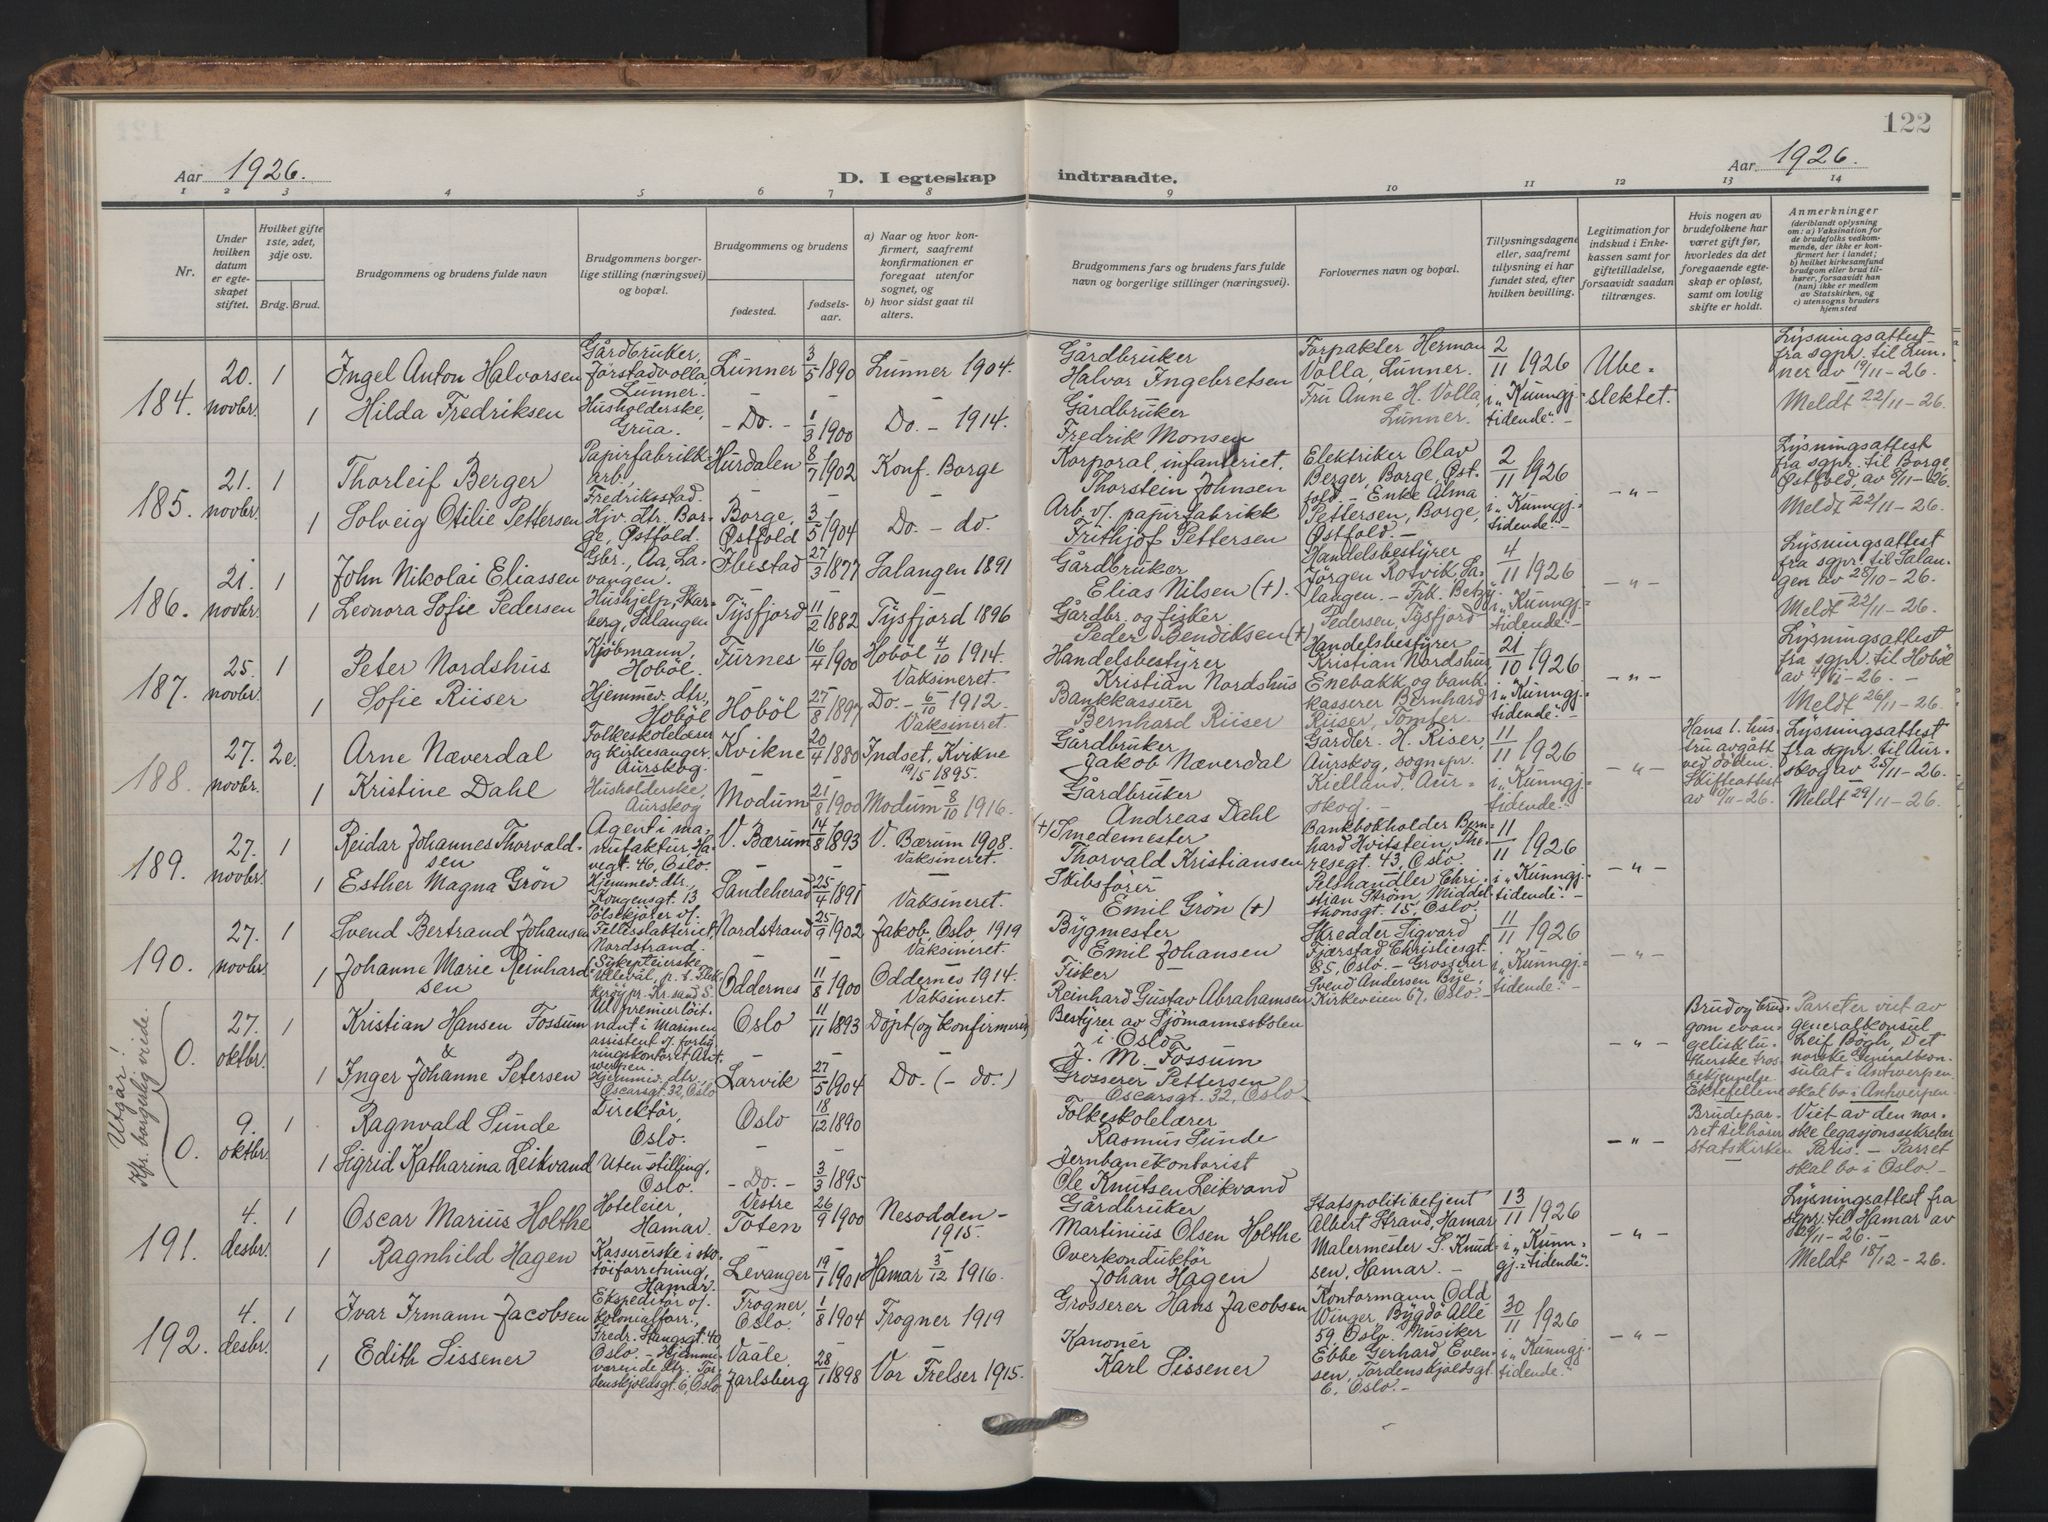 122
Aar 1926.
D. I egteskap indtraadte.
Aar 1926.
1 2 3 4 5 6 7 8 9 10 11 12 13 14
Nr.
Under hvilken datum er egteskapet stiftet.
Hvilket gifte 1ste, 2det, 3dje osv.
Brdg. Brud.
Brudgommens og brudens fulde navn
Brudgommens borgerlige stilling (næringsvei) og bopæl.
Brudgommens og brudens
fødested.
fødselsaar.
a) Naar og hvor konfirmert, saafremt konfirmationen er foregaat utenfor sognet, og
b) hvor sidst gaat til alters.
Brudgommens fars og brudens fars fulde navn og borgerlige stillinger (næringsvei).
Forlovernes navn og bopæl.
Tillysningsdagene eller, saafremt tillysning ei har fundet sted, efter hvilken bevilling.
Legitimation for indskud i Enkekassen samt for giftetilladelse, forsaavidt saadan tiltrænges.
Hvis nogen av brudefolkene har været gift før, hvorledes da det foregaaende egteskap er opløst, samt om lovlig skifte er holdt.
Anmerkninger
(deriblandt oplysning om: a) Vaksination for de brudefolks vedkommende, der ikke er konfirmert her i landet; b) hvilket kirkesamfund brudgom eller brud tilhører, forsaavidt han (hun) ikke er medlem av Statskirken, og c) utensogns bruders hjemsted
184. 20. novbr. 1 Ingel Anton Halvorsen Gårdbruker, Førstadvolla, Lunner. Lunner 3/5 1890 Lunner 1904. Gårdbruker Halvor Ingebretsen Forpakter Herman Volla, Lunner. 2/11 1926 Ubeslektet. Lysningsattest fra sgpr. til Lunner av 19/11-26.
1 Hilda Fredriksen Husholderske, Grua. - Do. - 1/3 1900 Do. - 1914. Gårdbruker Fredrik Monsen Fru Anne H. Volla, Lunner. i „Kunngj. tidende". Meldt 22/11-26.
185. 21. novbr. 1 Thorleif Berger Papirfabrikkarb. Fredriksstad. Hurdalen 8/7 1902 Konf. Borge Korporal, infanteriet, Thorstein Johnsen Elektriker Olav Berger, Borge, Østfold. - 2/11 1926 - " - Lysningsattest fra sgpr. til Borge, Østfold, av 8/11-26.
1 Solveig Otilie Pettersen Hjv. dtr. Borge, Østfold. Borge, Østfold 3/5 1904 Do. - do. Arb. v/. papirfabrikk Frithjof Pettersen Enke Alma Pettersen, Borge, Østfold. - i „Kunngj. tidende". - Meldt 22/11-26.
186. 21. novbr. 1 John Nikolai Eliassen Gbr., Aa, Lavangen. Ibestad 27/3 1877 Salangen 1891 Gårdbruker Elias Nilsen (+). Handelsbestyrer Jørgen Rotvik, Salangen. - 4/11 1926 - " - Lysningsattest fra sgpr. til Salangen av 28/10-26.
1 Leonora Sofie Pedersen Hushjelp, Skarberg, Salangen Tysfjord 11/2 1882 Tysfjord 1896 Gårdbr. og fisker Peder Bendiksen (+) Frk. Betzy Pedersen, Tysfjord i „Kunngj. tidende". - Meldt 22/11-26.
187. 25. novbr. 1 Peter Nordshus Kjøbmann, Hobøl. Furnes 16/4 1900 Hobøl 4/10 1914. Vaksineret. Handelsbestyrer Kristian Nordshus Handelsbestyrer Kristian Nordshus, Enebakk og bankkasserer Bernhard Riiser, Tomter. 21/10 1926 - " - Lysningsattest fra sgpr. til Hobøl av 4/11-26. -
1 Sofie Riiser Hjemmev. dtr, Hobøl Hobøl 27/8 1897 Do. - 6/10 1912. Vaksineret. Bankkasserer Bernhard Riiser i „Kunngj. tidende". - Meldt 26/11-26.
188. 27. novbr. 2e. Arne Næverdal Folkeskolelærer og kirkesanger. Aurskog. Kvikne 20/4 1880 Indset, Kvikne 19/5 1895. Gårdbruker Jakob Næverdal Gårdbr. H. Riser, Aurskog, sognepr. Kielland, Aurskog. - 11/11 1926 - " - Hans 1. hustru avgått ved døden. Skifteattest av 10/11-26. Lysningsattest fra sgpr. til Aurskog av 25/11-26.
1 Kristine Dahl Husholderske, Aurskog Modum 21/8 1900 Modum 8/10 1916. Gårdbruker Andreas Dahl i „Kunngj. tidende". - Meldt 29/11-26.
189. 27. novbr. 1 Reidar Johannes Thorvaldsen Agent i manufaktur, Havegt. 46, Oslo. V. Bærum 14/8 1893 V. Bærum 1908. Vaksineret. (+) Smedemester Thorvald Kristiansen Bankbokholder Bernhard Hvitstein, Theresegt. 43, Oslo. 11/11 1926 - " -
1 Esther Magna Grön Hjemmev. dtr, Kongensgt. 13 Sandeherad 25/4 1891 Vaksineret. Skibsfører Emil Grön (+) Pelshandler Christian Strøm, Middelthonsgt. 15, Oslo. i „Kunngj. tidende". -
190. 27. novbr. 1 Svend Bertrand Johansen Pølsekjører v/. Fellesslakteriet, Nordstrand. Nordstrand 25/9 1902 Jakob, Oslo, 1919 Vaksineret. Bygmester Emil Johansen Skredder Sigvard Fjærstad Christiesgt. 85, Oslo. - 11/11 1926 - " -
1 Johanne Marie Reinhardsen Sykepleierske, Ullevål, p. t. Flekkerøy pr. Kr.sand S. Oddernes 11/8 1900 Oddernes 1914. Vaksineret. Fisker Reinhard Gustav Abrahamsen Grosserer Svend Andersen Bye, Kirkeveien 67, Oslo. - i „Kunngj. tidende". -
Utgår! Kfr. borgerlig viede.
0. 27. oktbr. 1 Kristian Hansen Fossum & premierløitnant i Marinen, assistent v/. forhyringskontoret Antwerpen. Oslo 11/11 1893 Døpt (og konfirmeret) Bestyrer av Sjømannsskolen i Oslo J. M. Fossum - " - Brud og brudgom evangelisk lutherske trosbekjendelse Ektefellene skal bo i Antwerpen. Parret er viet av generalkonsul Leif Bögh, Det norske Generalkonsulat i Antwerpen.
1 Inger Johanne Petersen Hjemmev. dtr, Oscarsgt. 32, Oslo Larvik 27/5 1904 Do. (- do.) Grosserer Pettersen Oscarsgt. 32, Oslo -
0. 9. oktbr. 1 Ragnvald Sunde Direktør, Oslo. Oslo 18/12 1890 Folkeskolelærer Rasmus Sunde - " - Brudeparret tilhører statskirken Viet av den norske legasjonssekretær Paris. - Parret skal bo i Oslo. -
1 Sigrid Katharina Leikvand Uten stilling, Oslo. - Do. - 3/3 1895 Jernbanekontorist Ole Knutsen Leikvand
191. 4. desbr. 1 Oscar Marius Holthe Hoteleier, Hamar. Vestre Toten 26/9 1900 Nesodden - 1915. Gårdbruker Martinius Olsen Holthe Statspolitibetjent Albert Strand, Hamar 13/11 1926 - " - Lysningsattest fra sgpr. til Hamar av 29/11-26. -
1 Ragnhild Hagen Kassererske i skotøiforretning, Hamar. Levanger 19/1 1901 Hamar 3/12 1916. Overkonduktør Johan Hagen Malermester S. Knudsen, Hamar. - i „Kunngj.-tidende". Meldt 18/12-26.
192. 4. desbr. 1 Ivar Irmann Jacobsen Ekspeditør v/. kolonialforr., Fredr. Stangsgt. 40 Oslo. - Frogner, Oslo. 1/8 1904 Frogner 1919 Grosserer Hans Jacobsen Kontormann Odd Winger, Bygdö Allé 59, Oslo. Musiker 30/11 1926 - " -
1 Edith Sissener Hjemmeværende dtr. Tordenskjoldsgt. 6, Oslo. Vaale, Jarlsberg 28/1 1898 Vor Frelser 1915. Kanonér Karl Sissener Ebbe Gerhard Evensen, Tordenskjoldsgt. 6, Oslo. - i „Kunngj. tidende". -